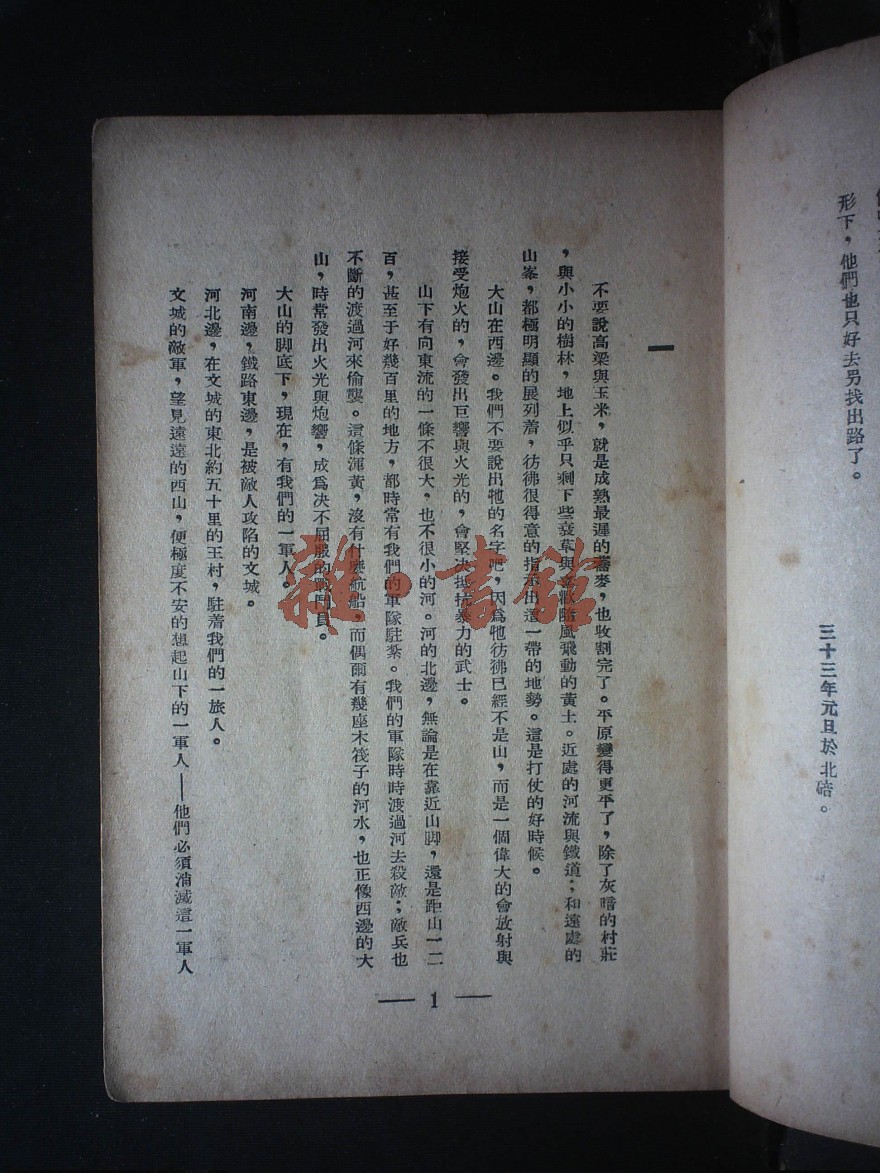 形下，他們也只好去另找出路了。
三十三年元旦於北碚。
一
不要說高梁與玉米，就是成熟最遲的蕎麥，也收割完了。平原變得更平了，除了灰暗的村莊
，與小小的樹林，地上似乎只剩下些衰草與喜歡隨風飛動的黃土。近處的河流與鐵道；和遠處的
山峯，都極明顯的展列着，彷彿很得意的指示出這一帶的地勢。這是打仗的好時候。
大山在西邊。我們不要說出牠的名字吧，因爲牠彷彿已經不是山，而是一個偉大的會放射與
接受炮火的，會發出巨響與火光的，會堅决抵抗暴力的武士。
山下有向東流的一條不很大，也不很小的河。河的北邊，無論是在靠近山脚，還是距山一二
百，甚至于好幾百里的地方，都時常有我們的軍隊駐紮。我們的軍隊時時渡過河去殺敵；敵兵也
不斷的渡過河來偷襲。這條渾黃，沒有什麼航船，而偶爾有幾座木筏子的河水，也正像西邊的大
山，時常發出火光與炮響，成爲决不屈服的戰鬥員。
大山的脚底下，現在，有我們的一軍人。
河南邊，鐵路東邊，是被敵人攻陷的文城。
河北邊，在文城的東北約五十里的王村，駐着我們的一旅人。
文城的敵軍，望見遠遠的西山，便極度不安的想起山下的一軍人——他們必須消滅這一軍人
— 1 —
雜·書館